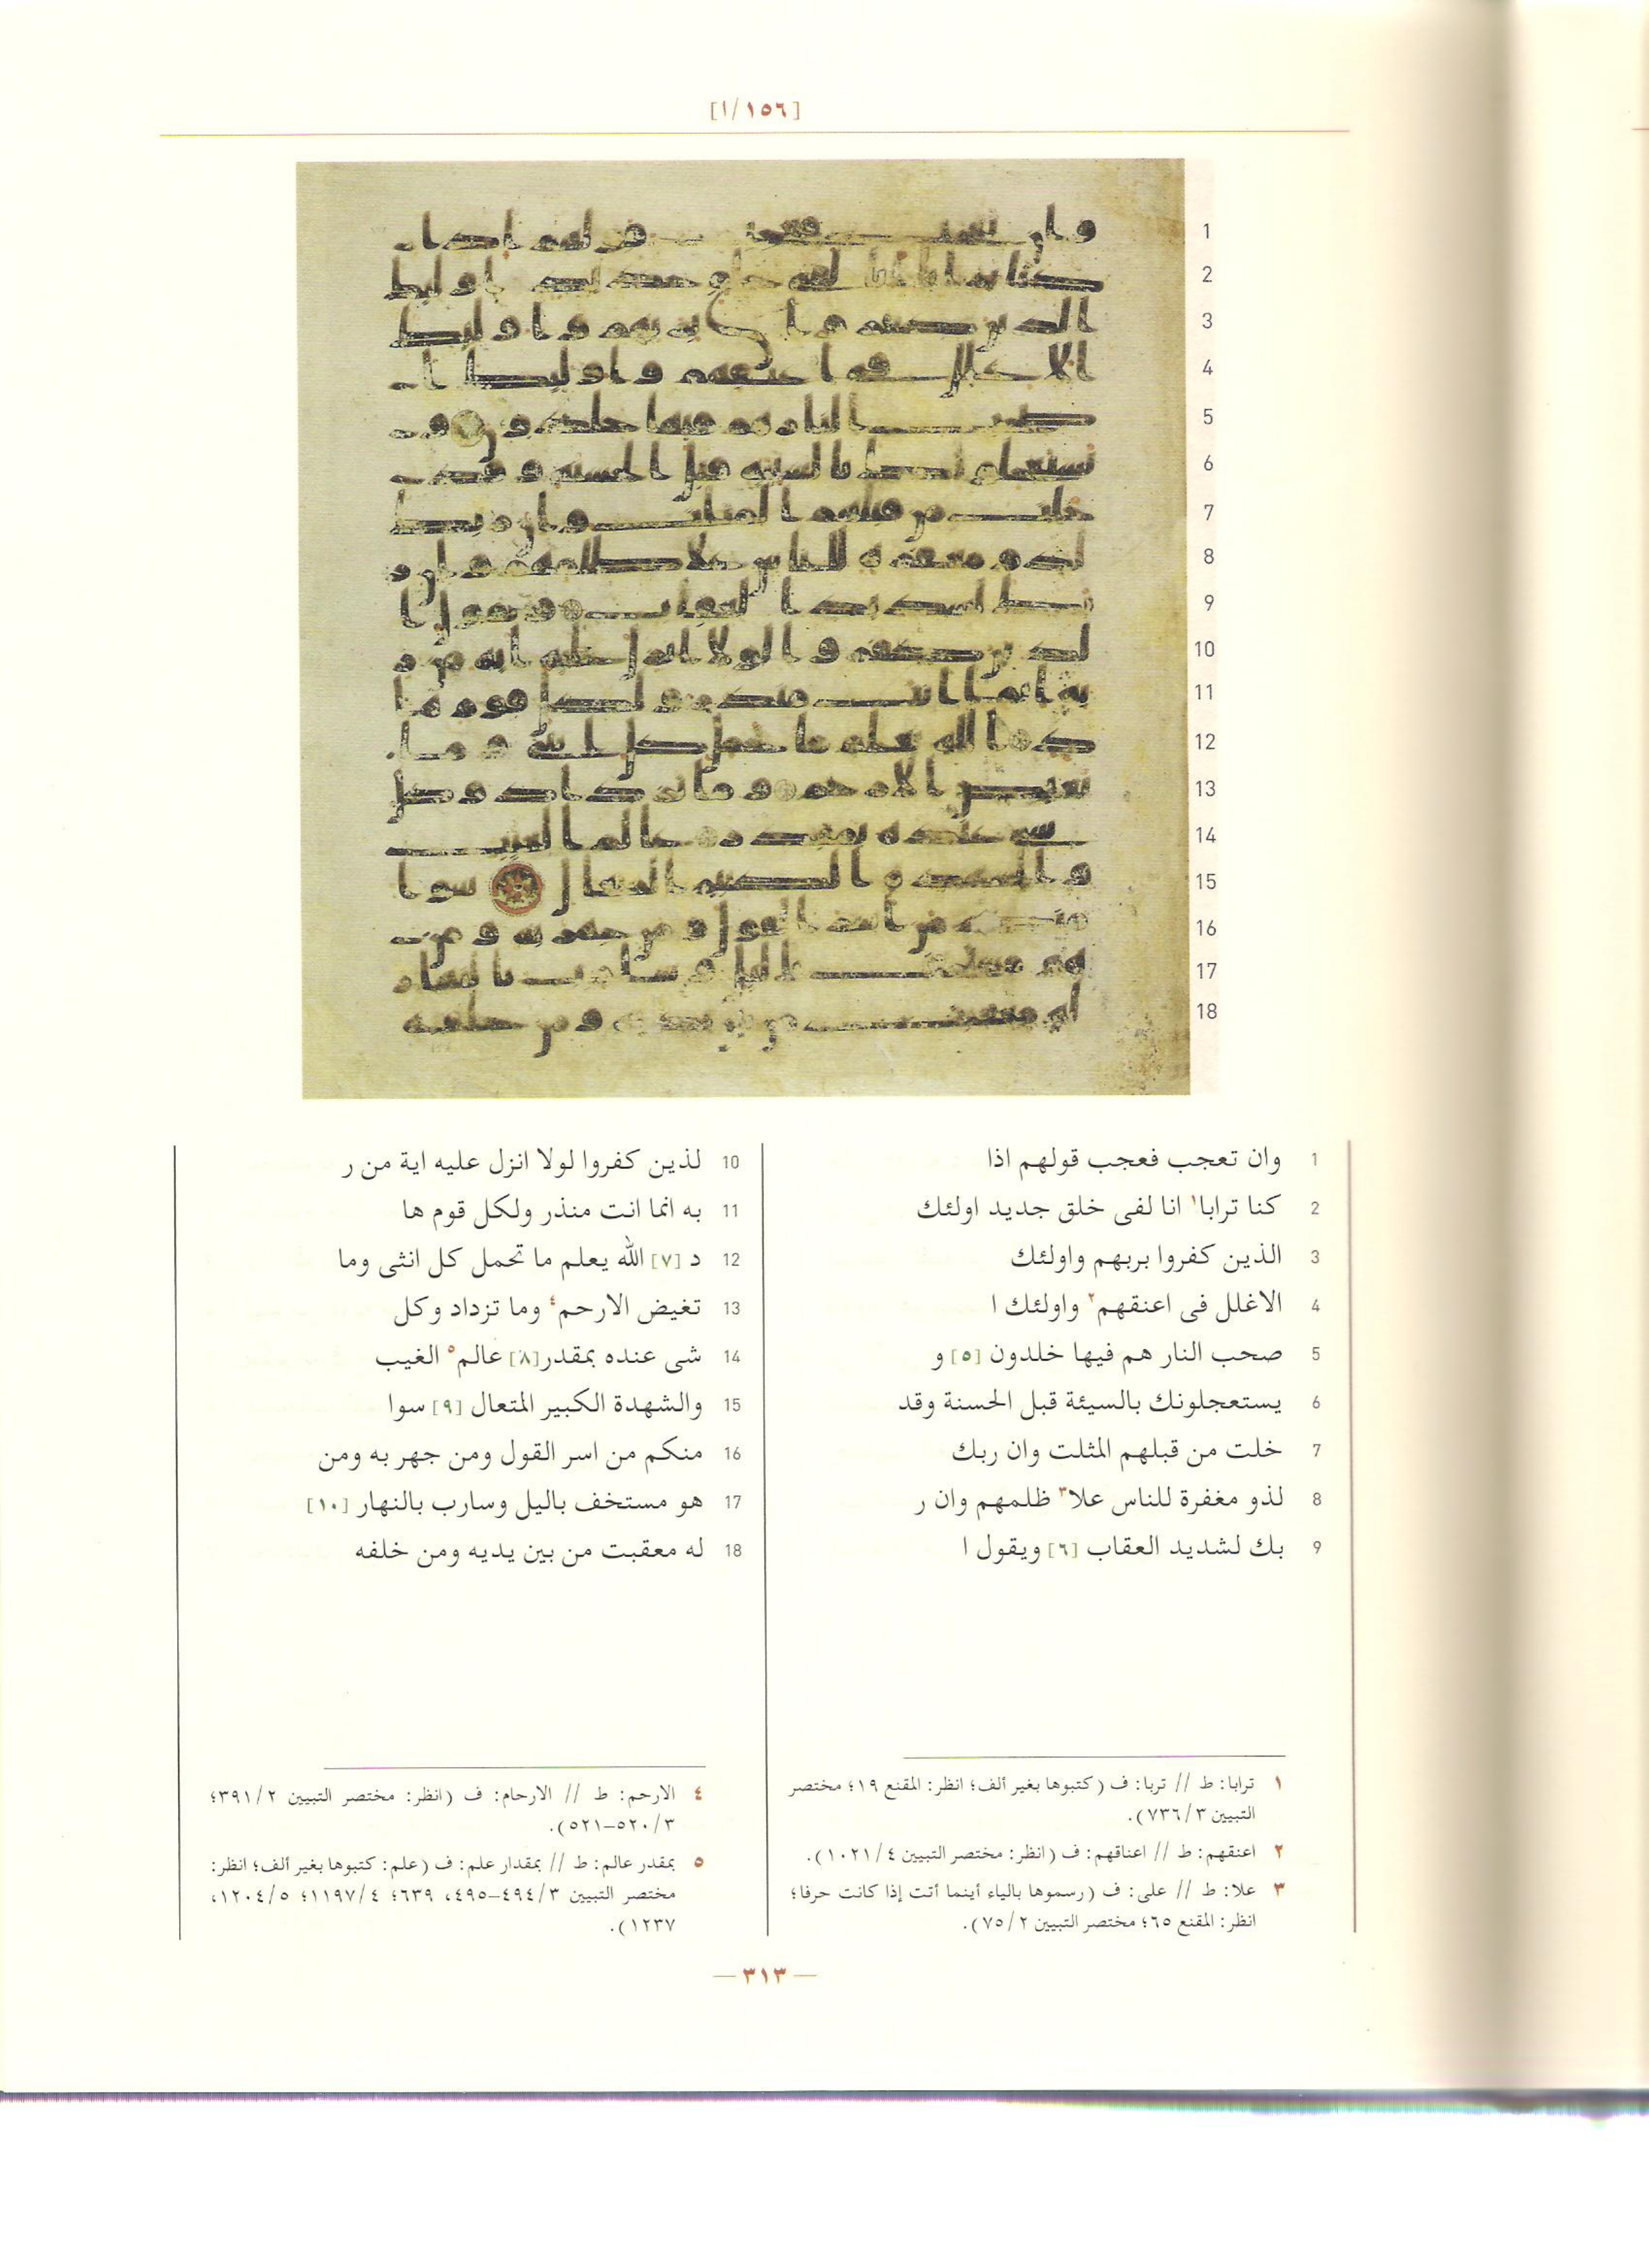 [١/١٥٦]
1
2
3
4
5
6
7
8
9
10
11
12
13
14
15
16
17
18
1 وان تعجب فعجب قولهم اذا
2 كنا ترابا١ انا لفى خلق جديد اولئك
3 الذين كفروا بربهم واولئك
4 الاغلل فى اعنقهم٢ واولئك ا
5 صحب النار هم فيها خلدون [٥] و
6 يستعجلونك بالسيئة قبل الحسنة وقد
7 خلت من قبلهم المثلت وان ربك
8 لذو مغفرة للناس علا٣ ظلمهم وان ر
9 بك لشديد العقاب [٦] ويقول ا
10 لذين كفروا لولا انزل عليه اية من ر
11 به انما انت منذر ولكل قوم ها
12 د [٧] الله يعلم ما تحمل كل انثى وما
13 تغيض الارحم٤ وما تزداد وكل
14 شى عنده بمقدر[٨] عالم٥ الغيب
15 والشهدة الكبير المتعال [٩] سوا
16 منكم من اسر القول ومن جهر به ومن
17 هو مستخف باليل وسارب بالنهار [١٠]
18 له معقبت من بين يديه ومن خلفه
١ ترابا: ط // تربا: ف (كتبوها بغير ألف؛ انظر: المقنع ١٩؛ مختصر
التبيين ٧٣٦/٣).
٢ اعنقهم: ط // اعناقهم: ف (انظر: مختصر التبيين ١٠٢١/٤).
٣ علا: ط // على: ف (رسموها بالياء أينما أتت إذا كانت حرفا؛
انظر: المقنع ٦٥؛ مختصر التبيين ٧٥/٢).
٤ الارحم: ط // الارحام: ف (انظر: مختصر التبيين ٣٩١/٢؛
٥٢٠/٣–٥٢١).
٥ بمقدر عالم: ط // بمقدار علم: ف (علم: كتبوها بغير ألف؛ انظر:
مختصر التبيين ٤٩٤/٣–٤٩٥، ٦٣٩؛ ١١٩٧/٤؛ ١٢٠٤/٥،
١٢٣٧).
— ٣١٣ —